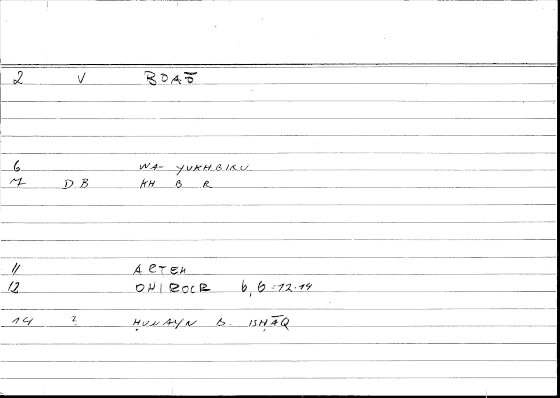 2 V BOAŌ
6 WA- YUKHBIRU
7 DB KH B R
11 ARTEM
12 ONIROCR 6,6=12.14
14 ? ḤUNAYN B. ISḤĀQ